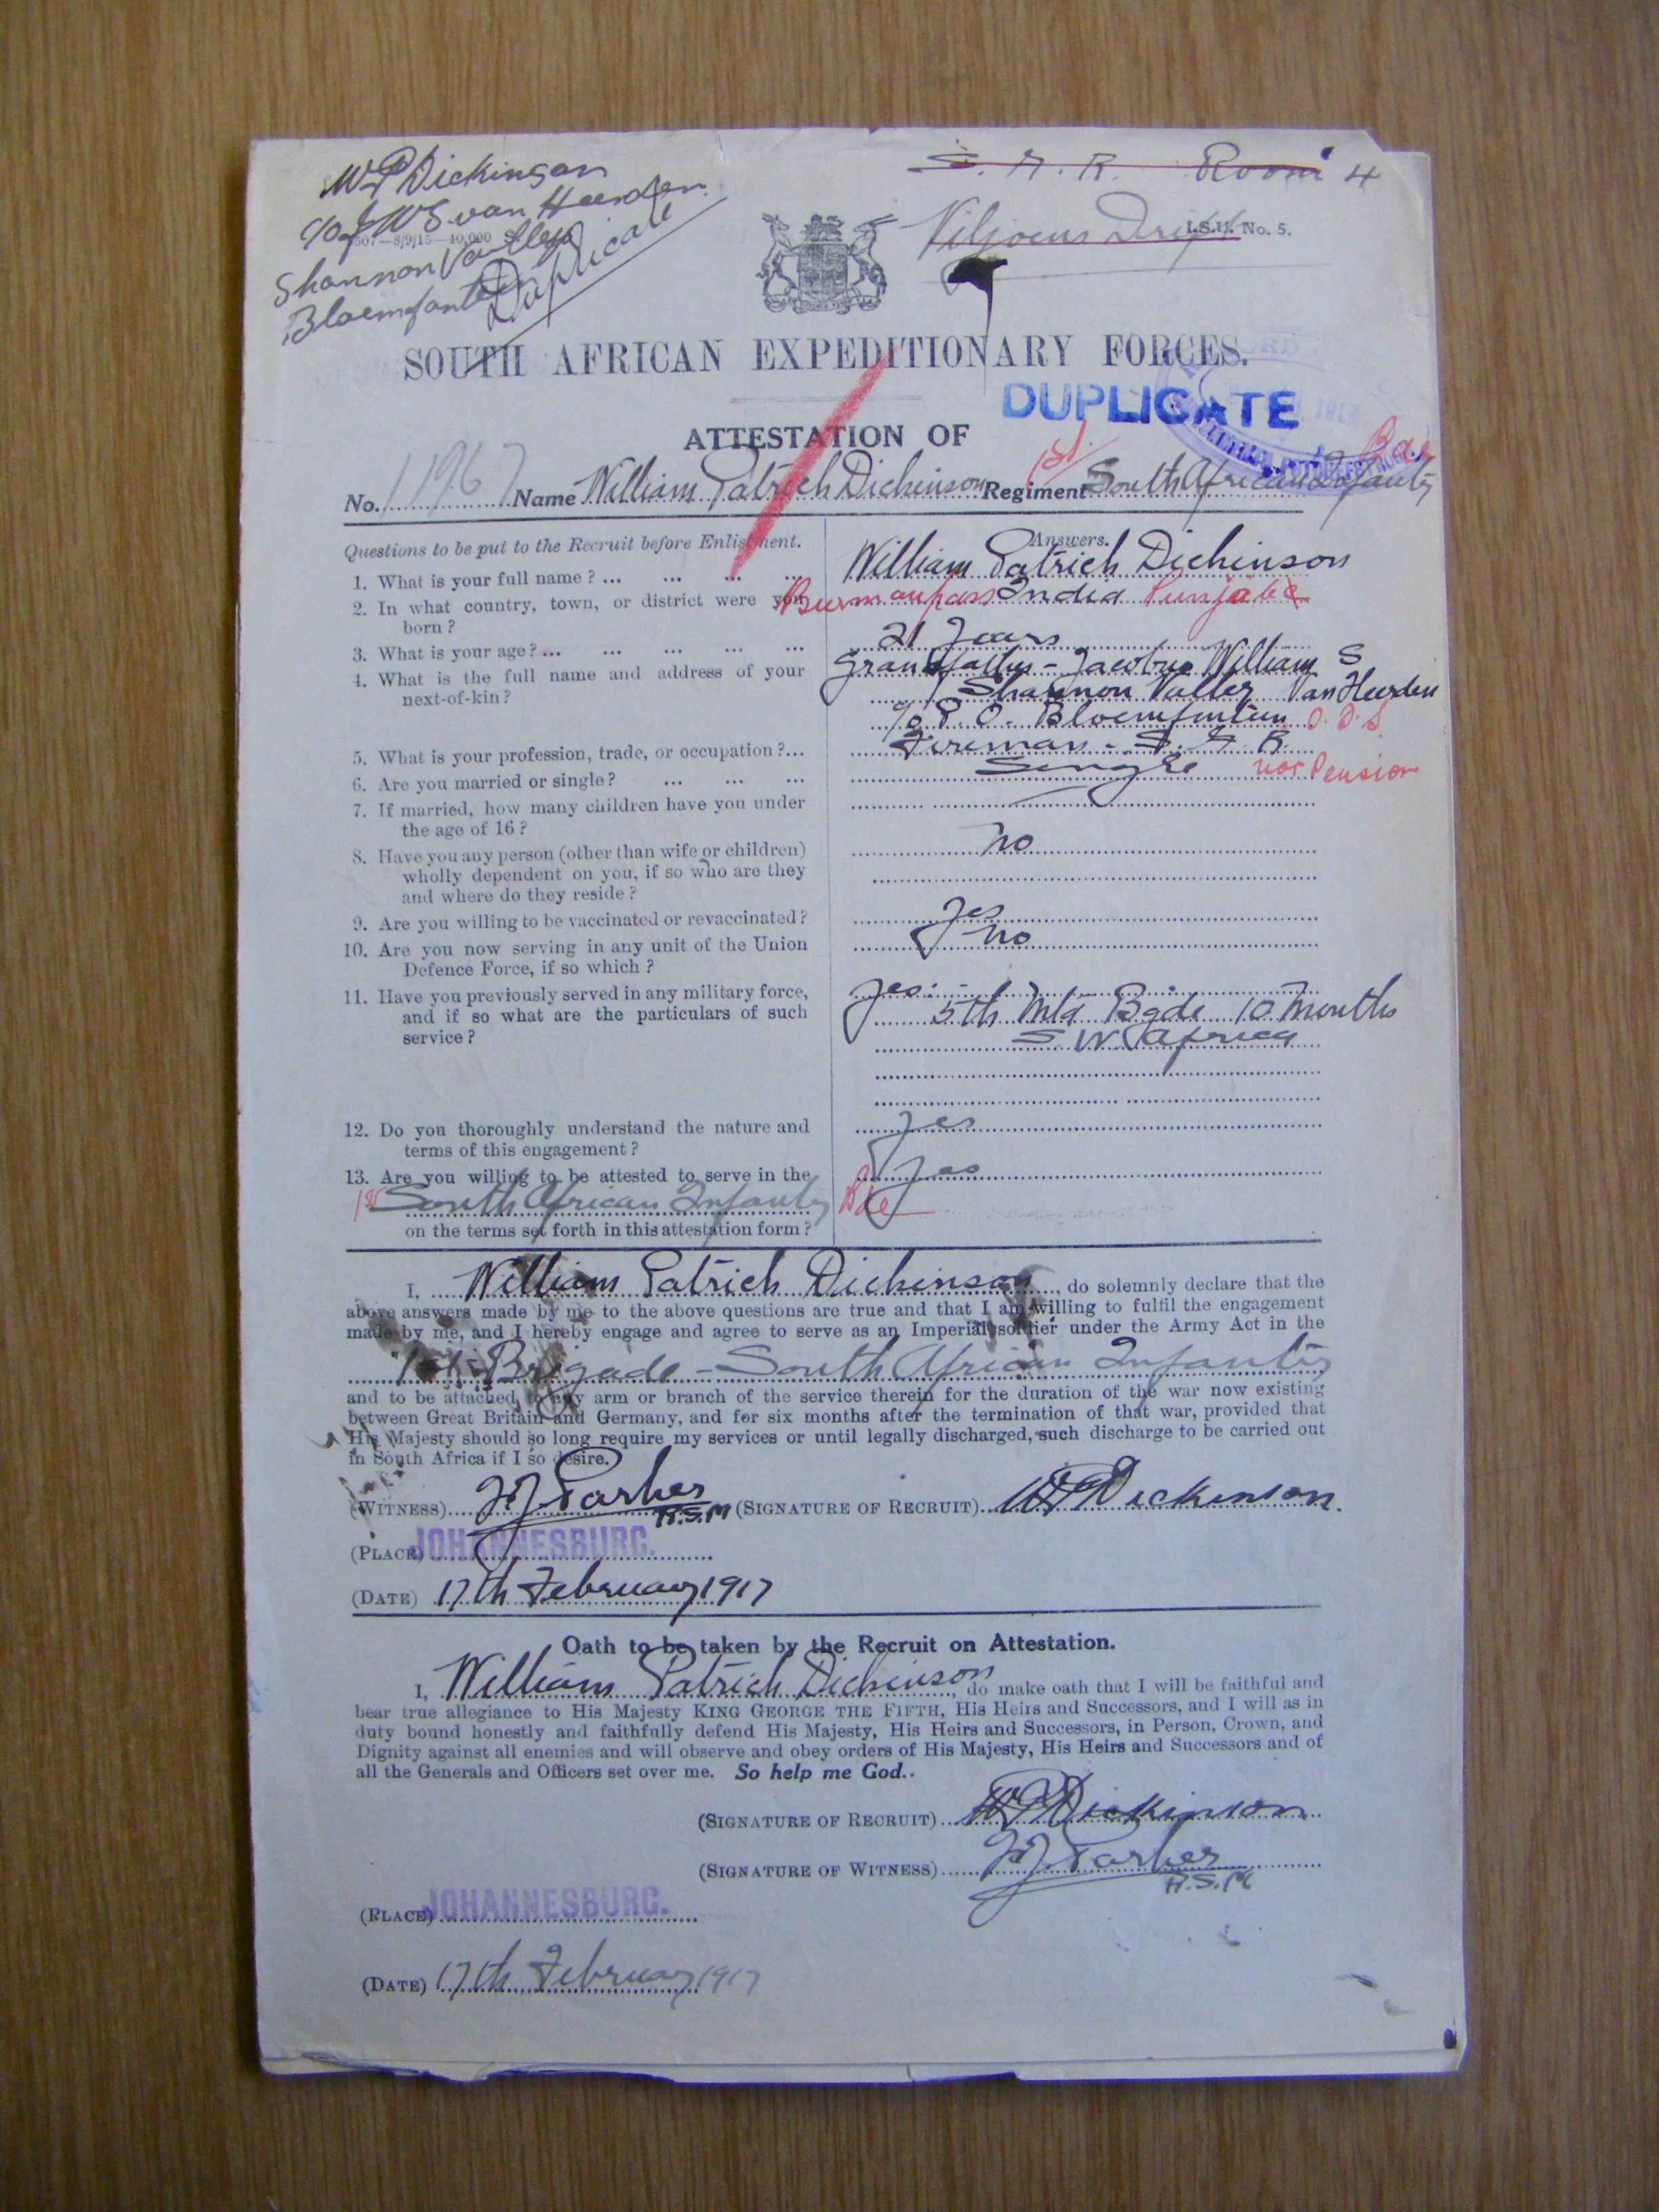 W P Dickinson
c/o J W S. van Heerden.
507—8/9/15—10,000
Shannon Valley
Bloemfontein
Duplicate
S. A. R. Room 4
Viljoens Drift
I.S.U. No. 5.
SOUTH AFRICAN EXPEDITIONARY FORCES.
DUPLICATE
ATTESTATION OF
No. 11967 Name William Patrick Dickinson Regiment 1st South African Infantry Bde
Questions to be put to the Recruit before Enlistment.
Answers.
1. What is your full name ? ... ... ... ...
William Patrick Dickinson
2. In what country, town, or district were you
born ?
India Punjabe
3. What is your age ? ... ... ... ... ...
21 Years
4. What is the full name and address of your
next-of-kin ?
Grandfather - Jacobus William S
Shannon Valley Van Heerden
c/o P. O. Bloemfontein O. F. S
5. What is your profession, trade, or occupation ?...
Fireman - S. A. R.
6. Are you married or single ? ... ... ...
Single not Pension
7. If married, how many children have you under
the age of 16 ?
8. Have you any person (other than wife or children)
wholly dependent on you, if so who are they
and where do they reside ?
no
9. Are you willing to be vaccinated or revaccinated ?
Yes
10. Are you now serving in any unit of the Union
Defence Force, if so which ?
no
11. Have you previously served in any military force,
and if so what are the particulars of such
service ?
Yes :-
5th Mtd Bgde 10 Months
S. W. Africa
12. Do you thoroughly understand the nature and
terms of this engagement ?
Yes
13. Are you willing to be attested to serve in the
1st South African Infantry Bde
on the terms set forth in this attestation form ?
Yes
I, William Patrick Dickinson, do solemnly declare that the
above answers made by me to the above questions are true and that I am willing to fulfil the engagement
made by me, and I hereby engage and agree to serve as an Imperial soldier under the Army Act in the
1st Brigade - South African Infantry
and to be attached to any arm or branch of the service therein for the duration of the war now existing
between Great Britain and Germany, and for six months after the termination of that war, provided that
His Majesty should so long require my services or until legally discharged, such discharge to be carried out
in South Africa if I so desire.
(WITNESS) J J Parker R.S.M (SIGNATURE OF RECRUIT) W P Dickinson.
(PLACE) JOHANNESBURG.
(DATE) 17th February 1917
Oath to be taken by the Recruit on Attestation.
I, William Patrick Dickinson, do make oath that I will be faithful and
bear true allegiance to His Majesty KING GEORGE THE FIFTH, His Heirs and Successors, and I will as in
duty bound honestly and faithfully defend His Majesty, His Heirs and Successors, in Person, Crown, and
Dignity against all enemies and will observe and obey orders of His Majesty, His Heirs and Successors and of
all the Generals and Officers set over me. So help me God..
(SIGNATURE OF RECRUIT) W P Dickinson
(SIGNATURE OF WITNESS) J J Parker
R.S.M
(PLACE) JOHANNESBURG.
(DATE) 17th February 1917